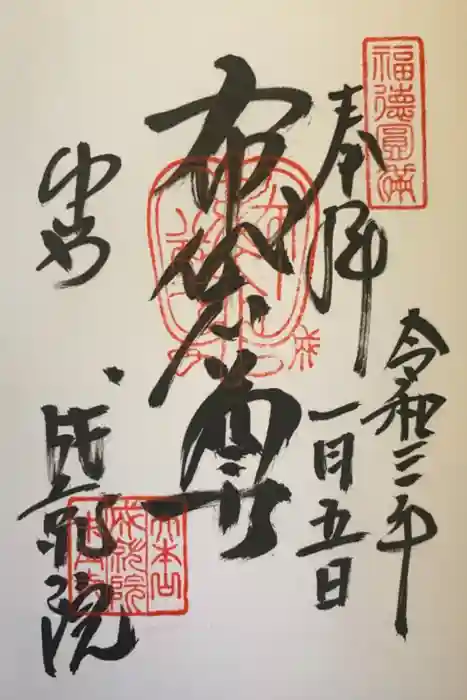 福德圓満
奉拝
令和三年
一月五日
布袋尊
中山
成就院
大本山
成就院